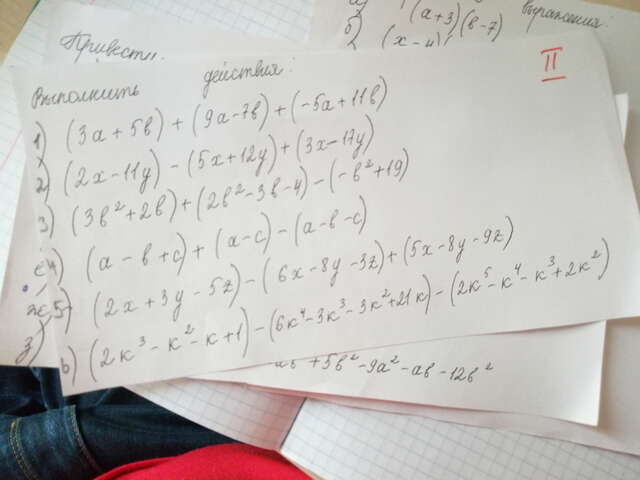 выражения:
(a+3)(b-7)
б)
(x-4)
Привести
II
Выполнить действия:
1) (3a+5b)+(9a-7b)+(-5a+11b)
2) (2x-11y)-(5x+12y)+(3x-17y)
3) (3b²+2b)+(2b²-3b-4)-(-b²+19)
4) (a-b+c)+(a-c)-(a-b-c)
5) (2x+3y-5z)-(6x-8y-3z)+(5x-8y-9z)
6) (2k³-k²-k+1)-(6k⁴-3k³-3k²+21k)-(2k⁵-k⁴-k³+2k²)
ab+5b²-9a²-ab-12b²